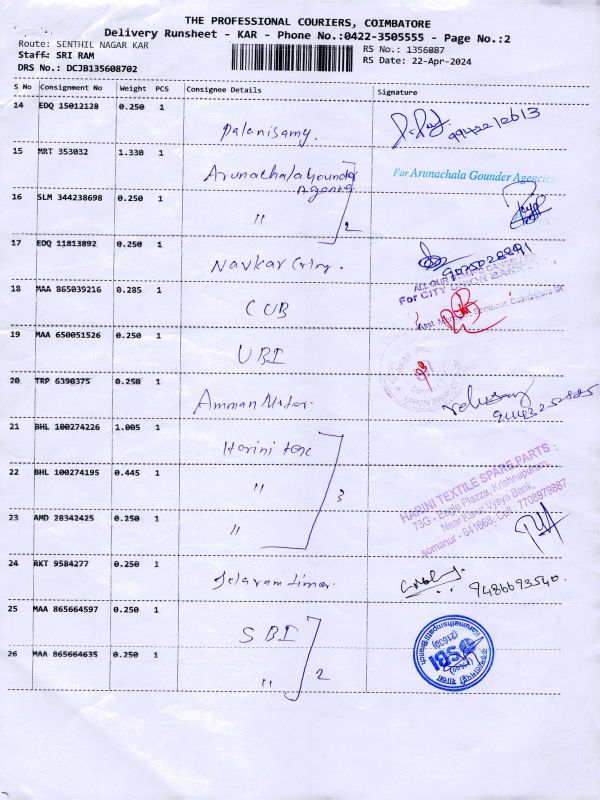 THE PROFESSIONAL COURIERS, COIMBATORE
Delivery Runsheet - KAR - Phone No.:0422-3505555 - Page No.:2
Route: SENTHIL NAGAR KAR
RS No.: 1356087
Staff: SRI RAM
RS Date: 22-Apr-2024
DRS No.: DCJB135608702
S No Consignment No Weight PCS Consignee Details Signature
14 EDQ 15012128 0.250 1
Palanisamy.
15 MRT 353032 1.330 1
Arunachala Gounder
Agency
For Arunachala Gounder Agencies
16 SLM 344238698 0.250 1
"
2
17 EDQ 11813892 0.250 1
Navkar
18 MAA 865039216 0.285 1
CUB
For CITY UNION BANK
19 MAA 650051526 0.250 1
UBI
20 TRP 6390375 0.250 1
Amman Motor.
21 BHL 100274226 1.005 1
Harini tex
22 BHL 100274195 0.445 1
"
3
HARINI TEXTILE SPARE PARTS
73G - Eagle Plazza, Krishnapuram,
Near Karur Vysya Bank,
somanur - 641668. Cell : 7708979887
23 AMD 28342425 0.250 1
"
24 RKT 9584277 0.250 1
9486693540.
25 MAA 865664597 0.250 1
SBI
SBI
(21630)
Karumathampatti Branch
26 MAA 865664635 0.250 1
"
2